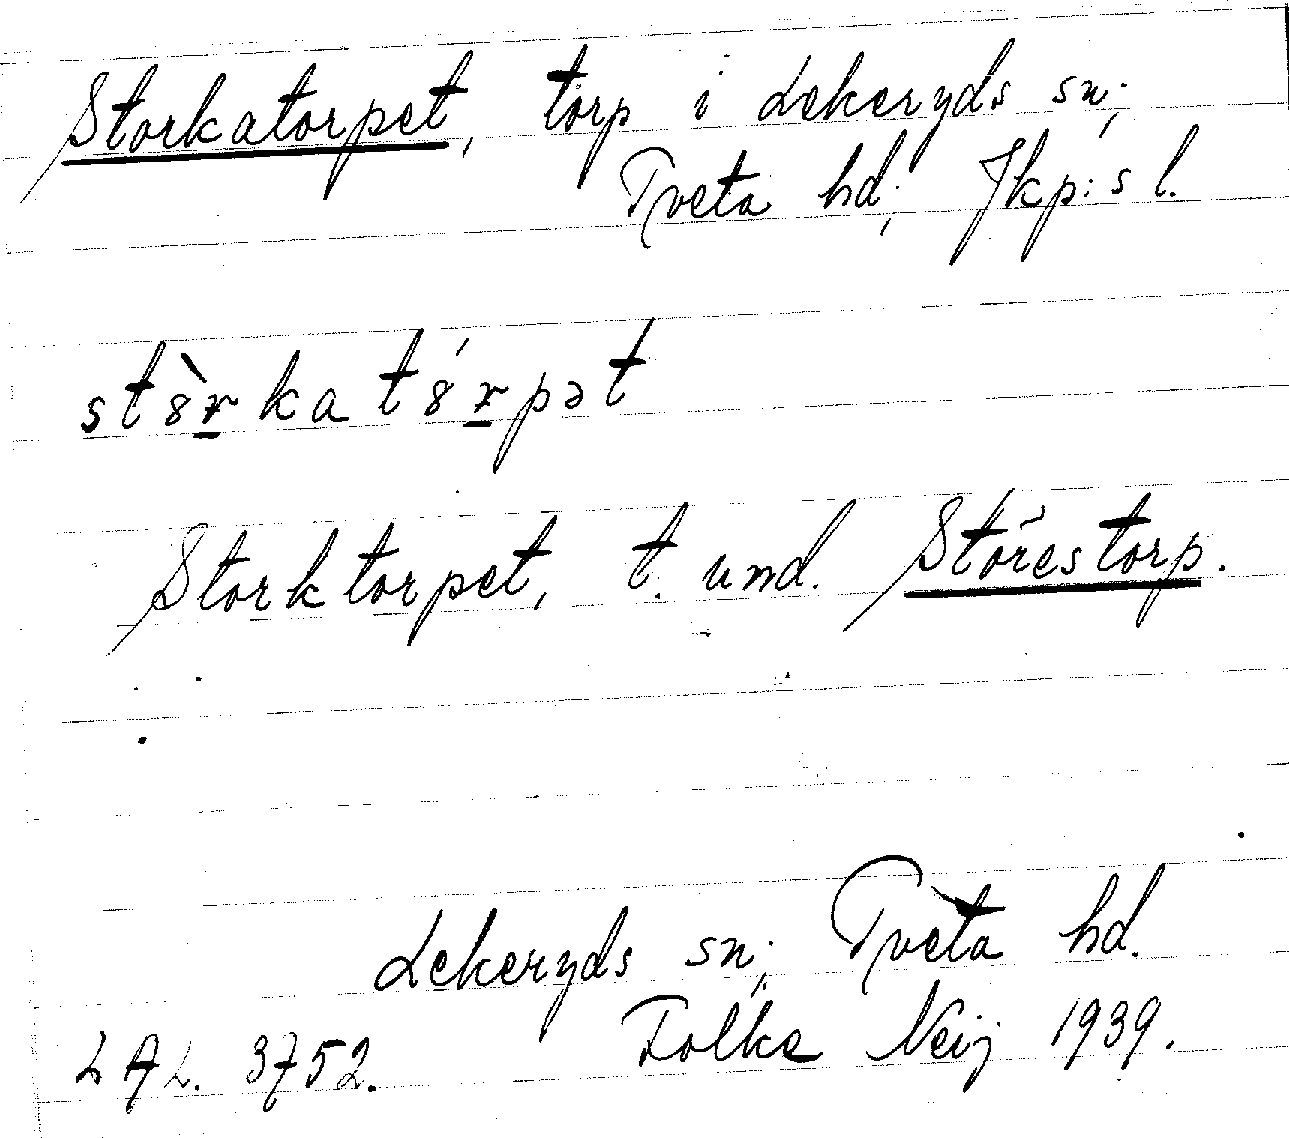 Storkatorpet, torp i Lekeryds sn;
Tveta hd; Jkp:s l.
st8̀r̠kat8́r̠pət
Storktorpet, t. und. Stořestorp.
Lekeryds sn; Tveta hd.
LAL. 3752. Folke Neij 1939.